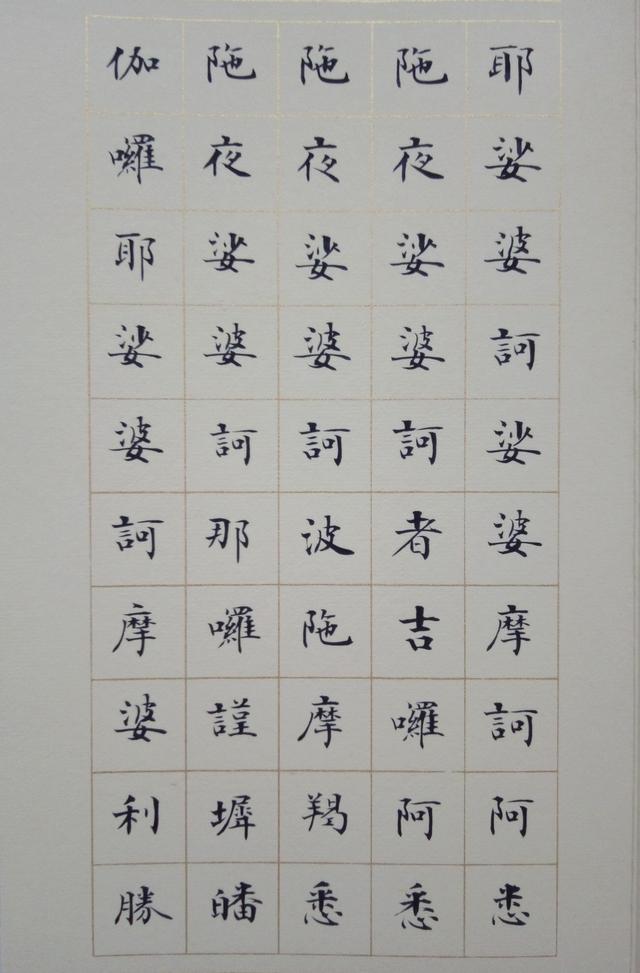 耶娑婆訶娑婆摩訶阿悉
陁夜娑婆訶者吉囉阿悉
陁夜娑婆訶波陁摩羯悉
陁夜娑婆訶那囉謹墀皤
伽囉耶娑婆訶摩婆利勝